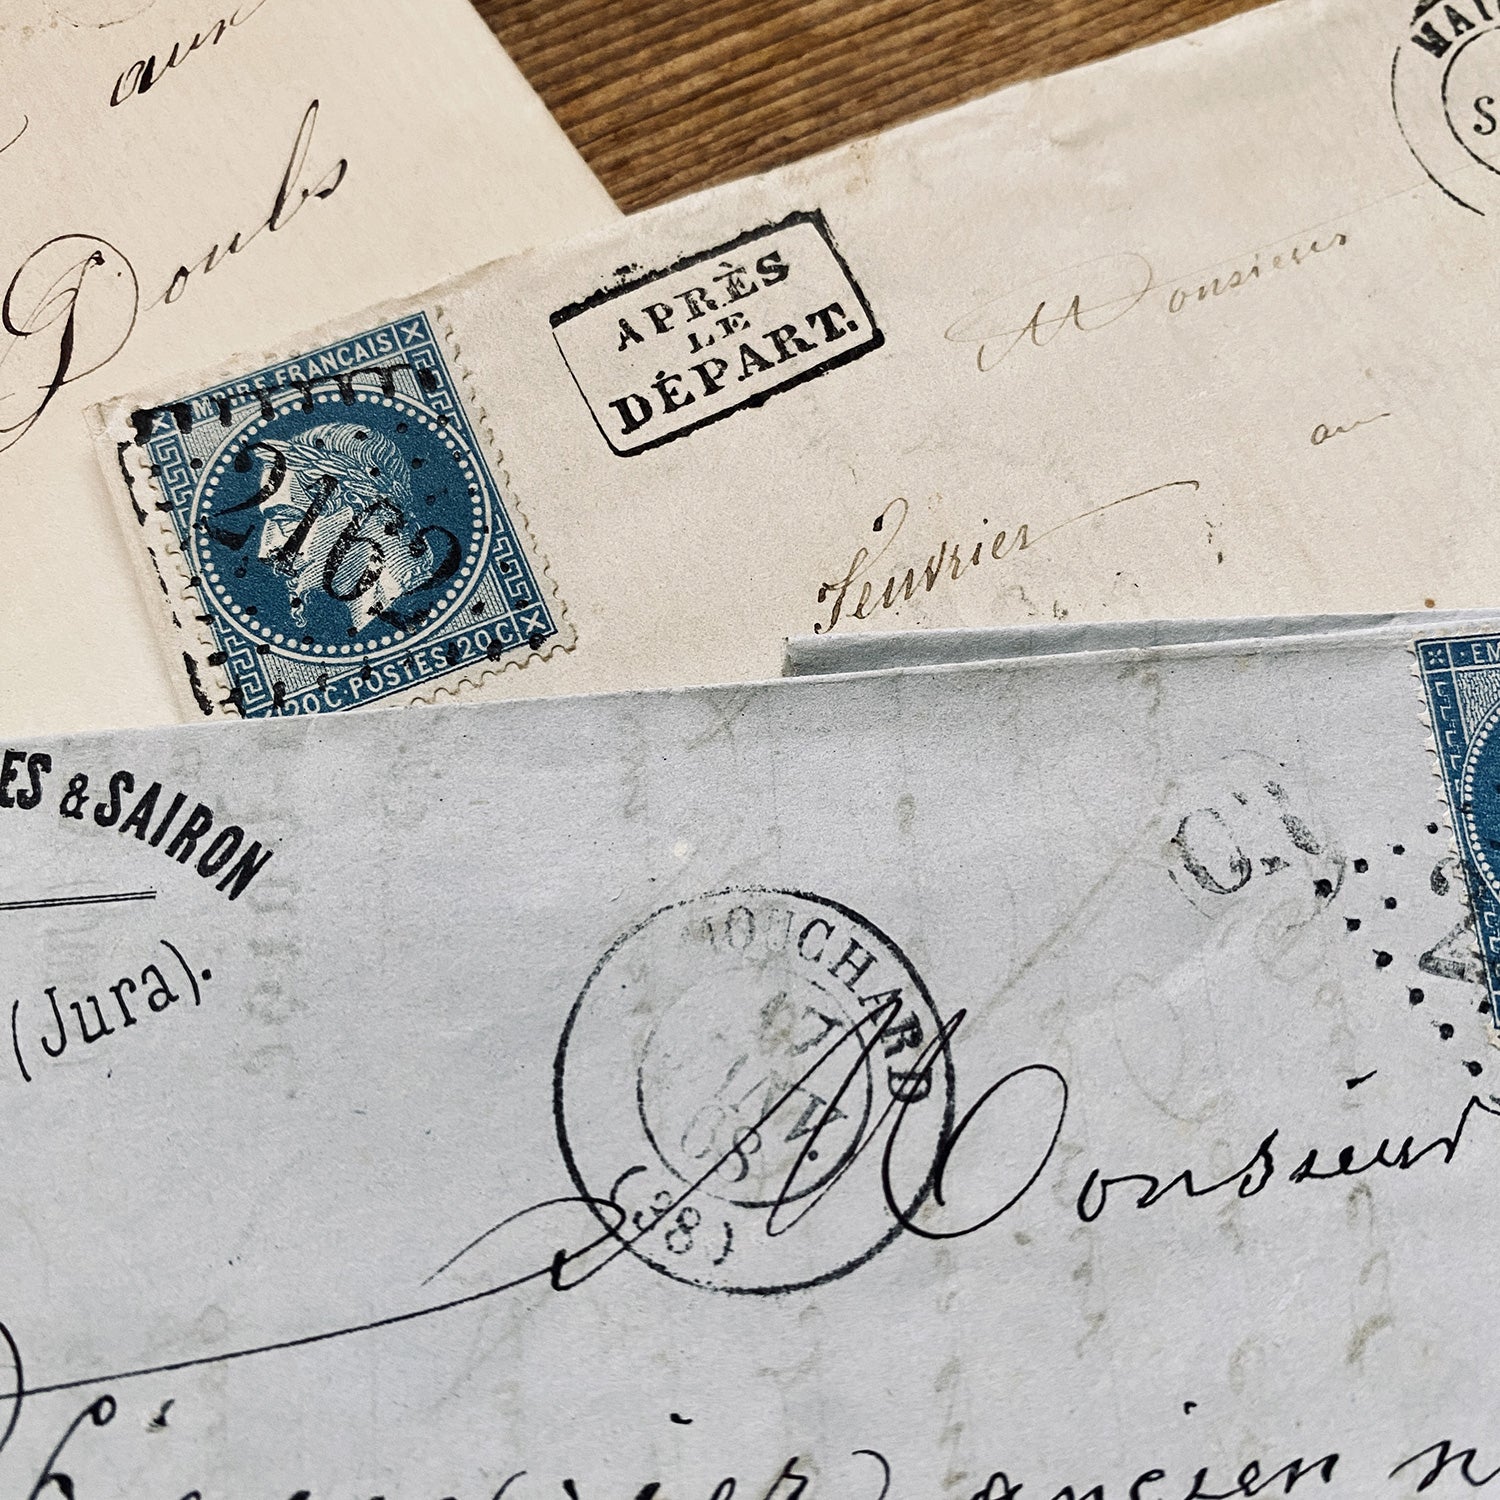 aux
Doubs
MAI
S
APRÈS
LE
DÉPART.
Monsieur
EMPIRE FRANÇAIS
2162
20C POSTES 20C
au
Feuvrier
EM
ES & SAIRON
(Jura).
MOUCHARD
JANV.
68
(38)
Monsieur
ancien